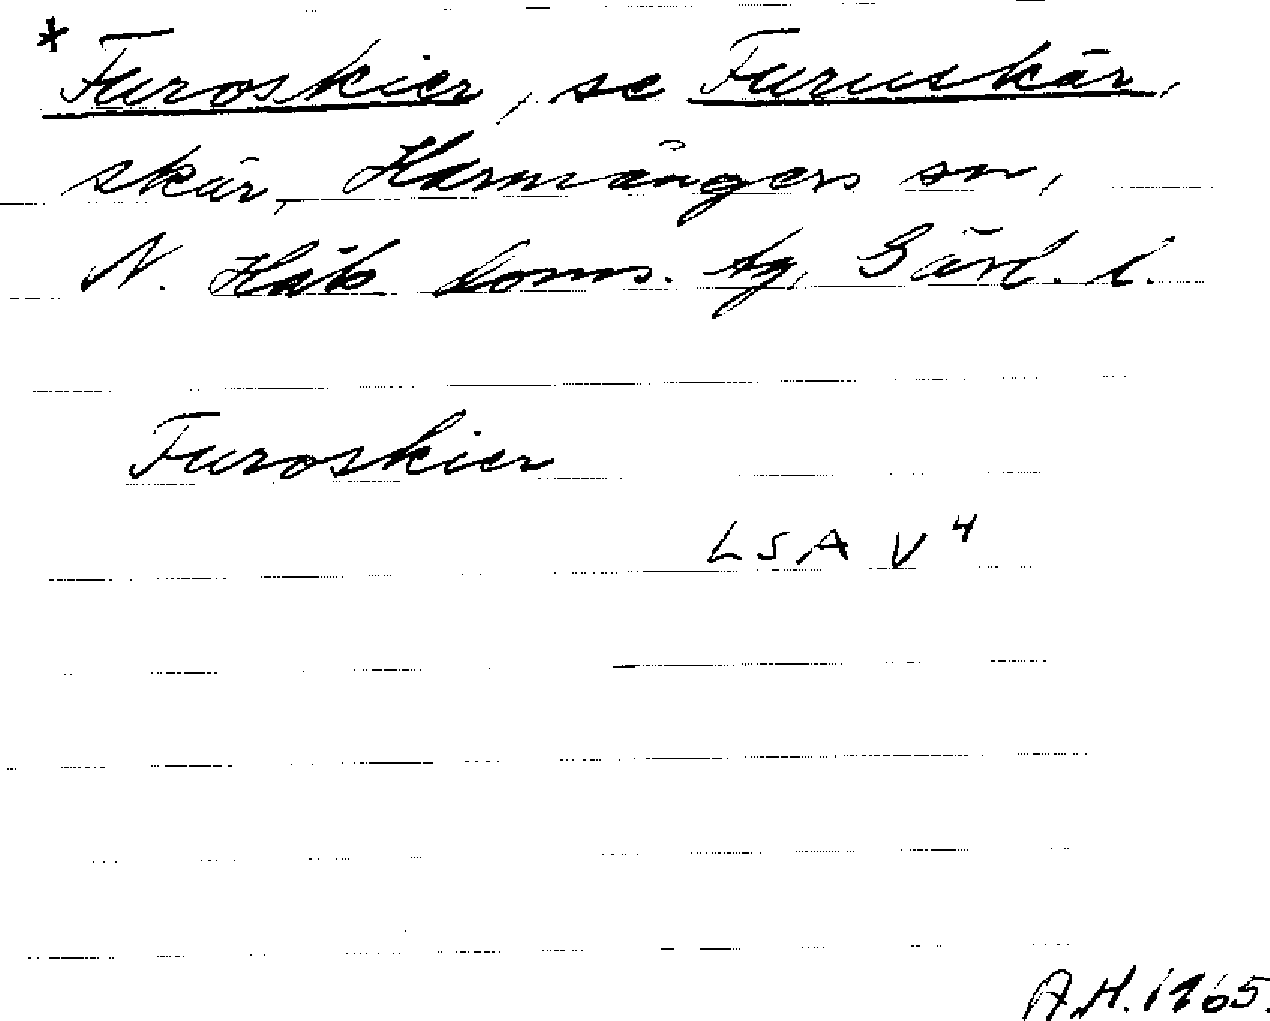 * Furoskier, se Furuskär,
skär, Harmångers sn,
N. Häls doms. tg, Gävl. l.
Furoskier
LSA V4
A.H. 1965.